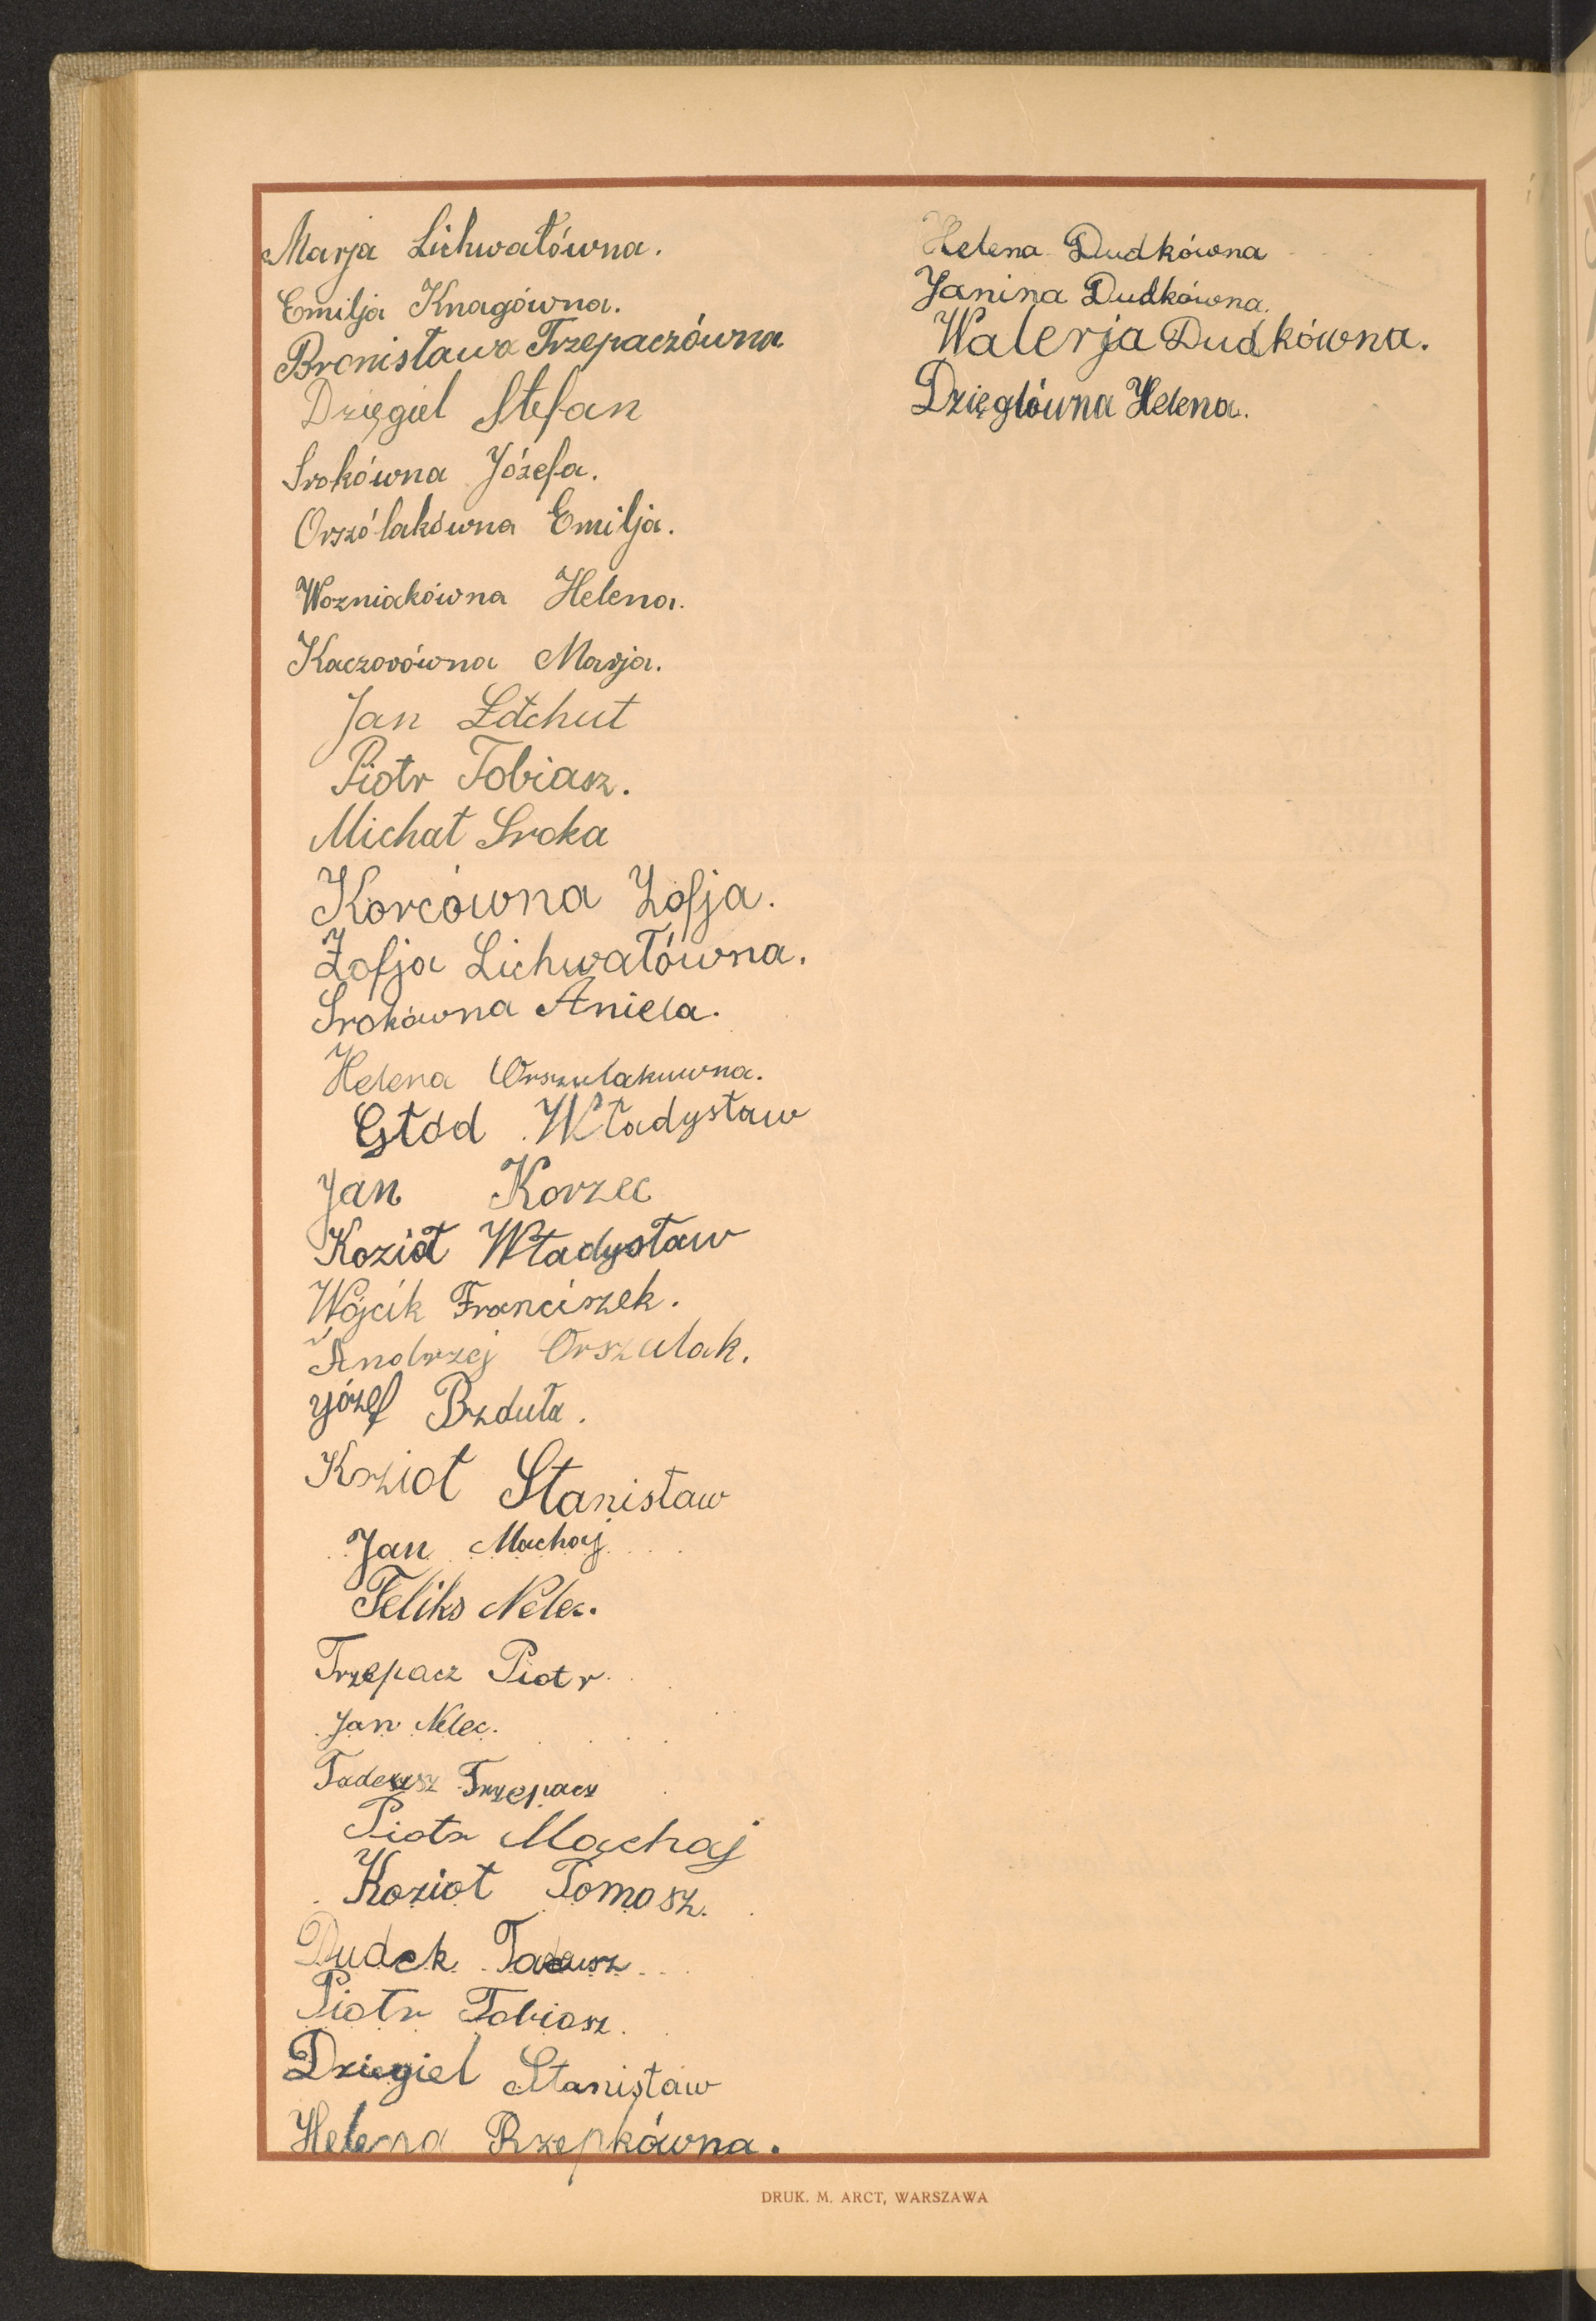 Marja Lichwałówna.
Emilja Knagówna.
Bronisława Trzepaczówna
Dzięgiel Stefan
Srokówna Józefa.
Orszólakówna Emilja.
Wozniakówna Helena.
Kaczorówna Marja.
Jan Łachut
Piotr Tobiasz.
Michał Sroka
Korcówna Zofja.
Zofja Lichwałówna.
Srokówna Aniela.
Helena Orszulakuwna.
Głód Władysław
Jan Korzec
Kozioł Władysław
Wójcik Franciszek.
Andrzej Orszulak.
Józef Brzduła.
Kozioł Stanisław
Jan Machaj
Feliks Nelec.
Trzepacz Piotr.
Jan Nelec.
Tadeusz Trzepacz
Piotr Machaj
Kozioł Tomasz.
Dudek Tadeusz
Piotr Tobiasz.
Dzięgiel Stanisław
Helena Rzepkówna.
Helena Dudkówna
Janina Dudkówna.
Walerja Dudkówna.
Dzięglówna Helena.
DRUK. M. ARCT, WARSZAWA